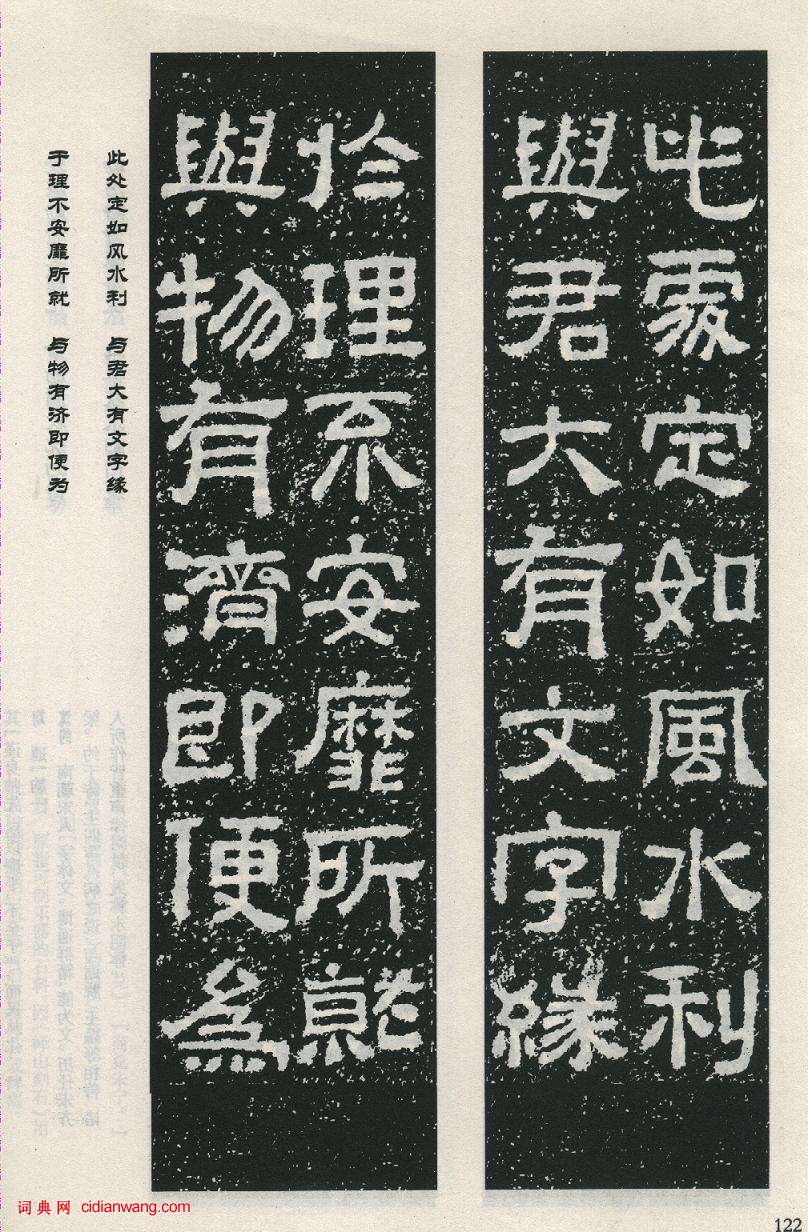 此處定如風水利
與君大有文字緣
於理不安靡所就
與物有濟即便為
此处定如风水利 与君大有文字缘
于理不安靡所就 与物有济即便为
词典网 cidianwang.com
122